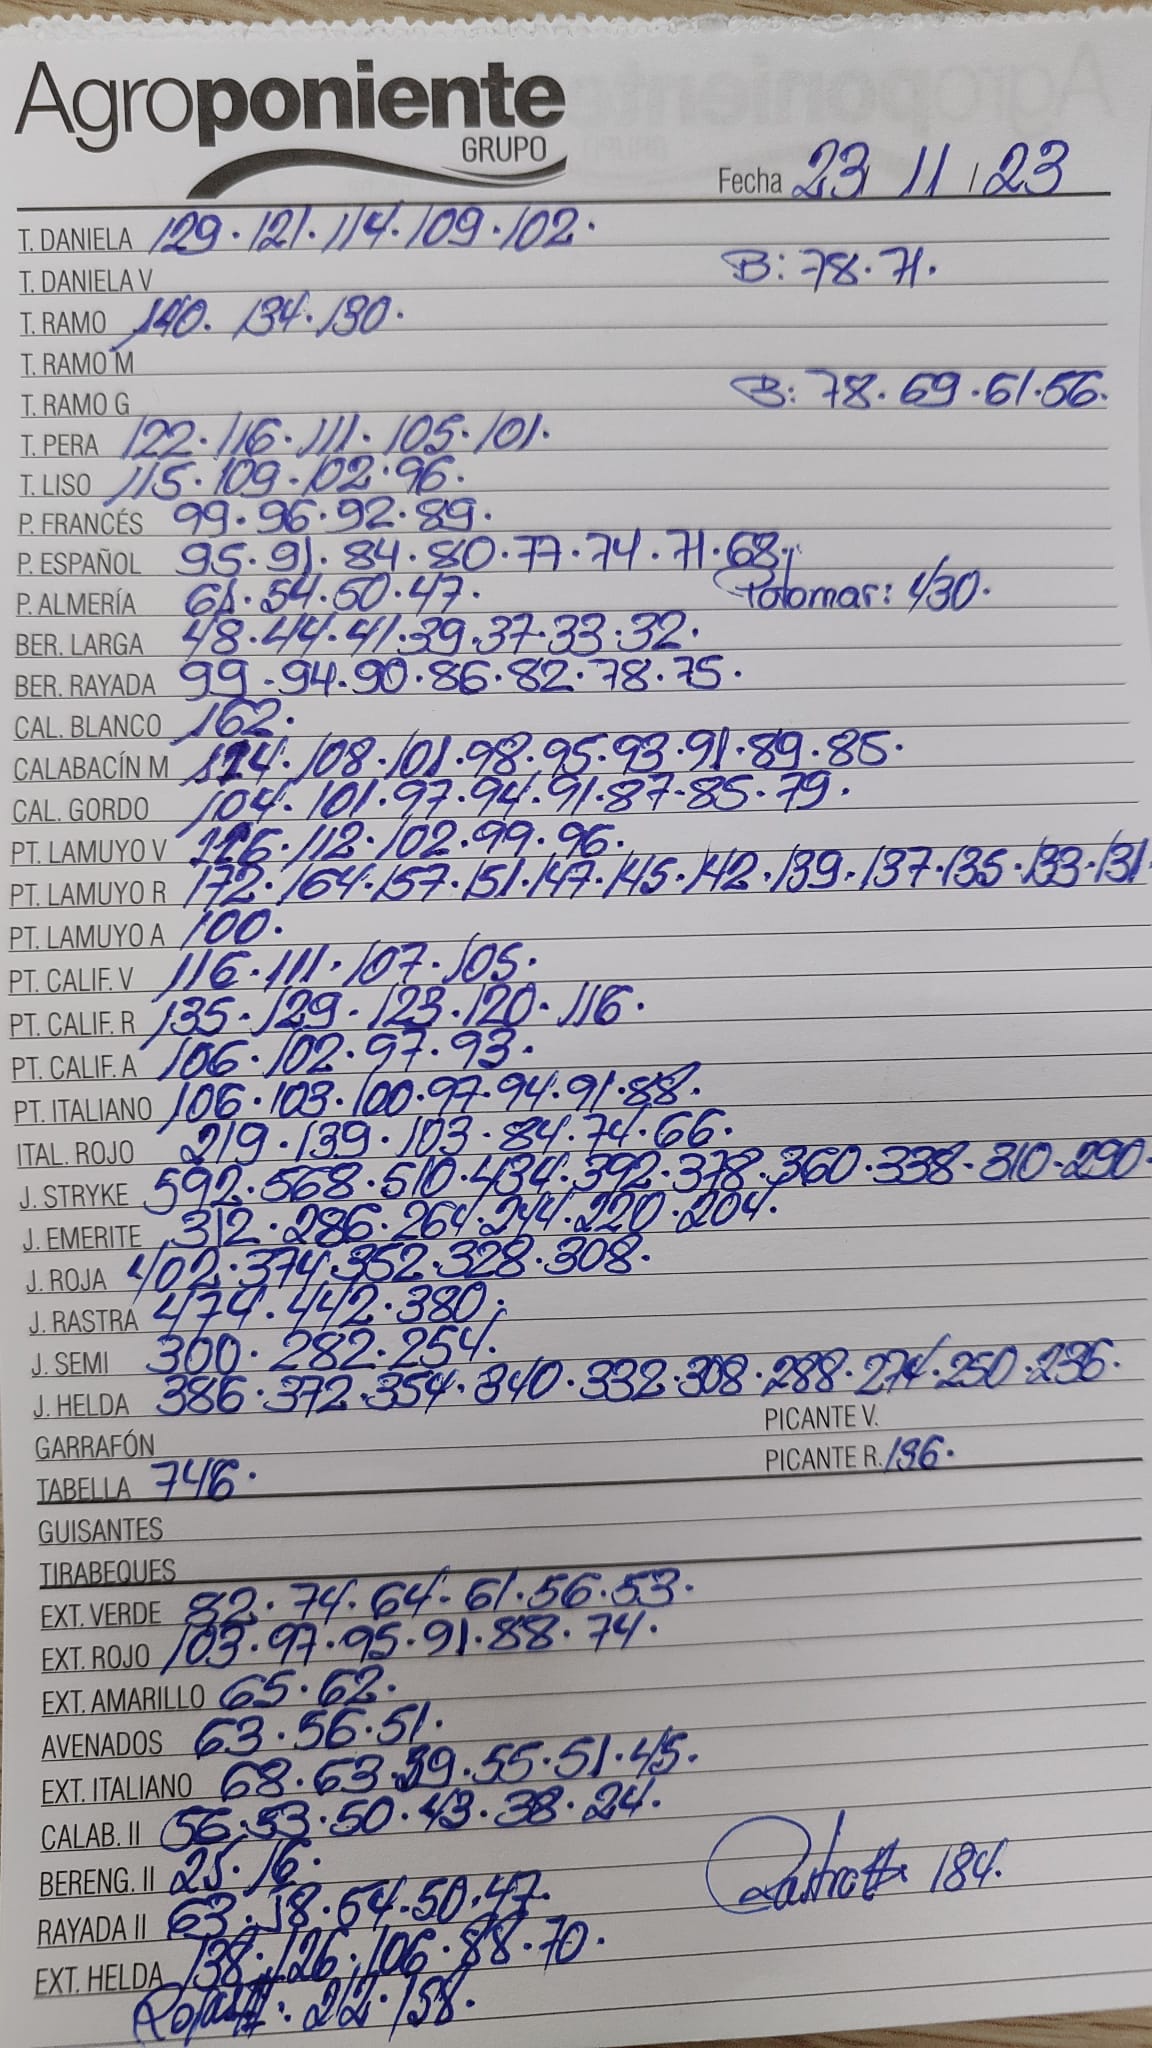 Agroponiente
GRUPO
Fecha 23 / 11 / 23
T. DANELA 129 · 121 · 114 · 109 · 102 ·
T. DANIELA V B: 78 · 71 ·
T. RAMO 140 · 134 · 130 ·
T. RAMO M
T. RAMO G B: 78 · 69 · 61 · 56 ·
T. PERA 122 · 116 · 111 · 105 · 101 ·
T. LISO 115 · 109 · 102 · 96 ·
P. FRANCÉS 99 · 96 · 92 · 89 ·
P. ESPAÑOL 95 · 91 · 84 · 80 · 77 · 74 · 71 · 68 ·
P. ALMERÍA 61 · 54 · 50 · 47 · Palomar: 430 ·
BER. LARGA 48 · 44 · 41 · 39 · 37 · 33 · 32 ·
BER. RAYADA 99 · 94 · 90 · 86 · 82 · 78 · 75 ·
CAL. BLANCO 162 ·
CALABACÍN M 114 · 108 · 101 · 98 · 95 · 93 · 91 · 89 · 85 ·
CAL. GORDO 104 · 101 · 97 · 94 · 91 · 87 · 85 · 79 ·
PT. LAMUYO V 116 · 112 · 102 · 99 · 96 ·
PT. LAMUYO R 172 · 164 · 157 · 151 · 147 · 145 · 142 · 139 · 137 · 135 · 133 · 131
PT. LAMUYO A 100 ·
PT. CALIF. V 116 · 111 · 107 · 105 ·
PT. CALIF. R 135 · 129 · 123 · 120 · 116 ·
PT. CALIF. A 106 · 102 · 97 · 93 ·
PT. ITALIANO 106 · 103 · 100 · 97 · 94 · 91 · 88 ·
ITAL. ROJO 219 · 139 · 103 · 84 · 74 · 66 ·
J. STRYKE 592 · 568 · 510 · 434 · 392 · 378 · 360 · 338 · 310 · 290 ·
J. EMERITE 312 · 286 · 264 · 244 · 220 · 204 ·
J. ROJA 402 · 374 · 352 · 328 · 308 ·
J. RASTRA 474 · 442 · 380 ·
J. SEMI 300 · 282 · 254 ·
J. HELDA 386 · 372 · 354 · 340 · 332 · 308 · 288 · 274 · 250 · 236 ·
GARRAFÓN PICANTE V.
TABELLA 746 · PICANTE R. 196 ·
GUISANTES
TIRABEQUES
EXT. VERDE 82 · 74 · 64 · 61 · 56 · 53 ·
EXT. ROJO 103 · 97 · 95 · 91 · 88 · 74 ·
EXT. AMARILLO 65 · 62 ·
AVENADOS 63 · 56 · 51 ·
EXT. ITALIANO 68 · 63 · 59 · 55 · 51 · 45 ·
CALAB. II 56 · 53 · 50 · 43 · 38 · 24 ·
BERENG. II 25 · 16 · 184 ·
RAYADA II 63 · 58 · 54 · 50 · 47 ·
EXT. HELDA 138 · 126 · 106 · 88 · 70 ·
Roja II: 212 · 158 ·